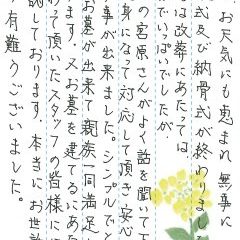 お天気にも恵まれ、無事に
式及び納骨式が終わりまし
は改葬にあたっては
でいっぱいでしたが、
の宮原さんがよく話を聞いて下
身になって対応して頂き安心
事が出来ました。シンプルでと
お墓が出来て親族一同満足し
ます。又お墓を建てるにあた
って頂いたスタッフの皆様には
謝しております。本当にお世話
有難うございました。